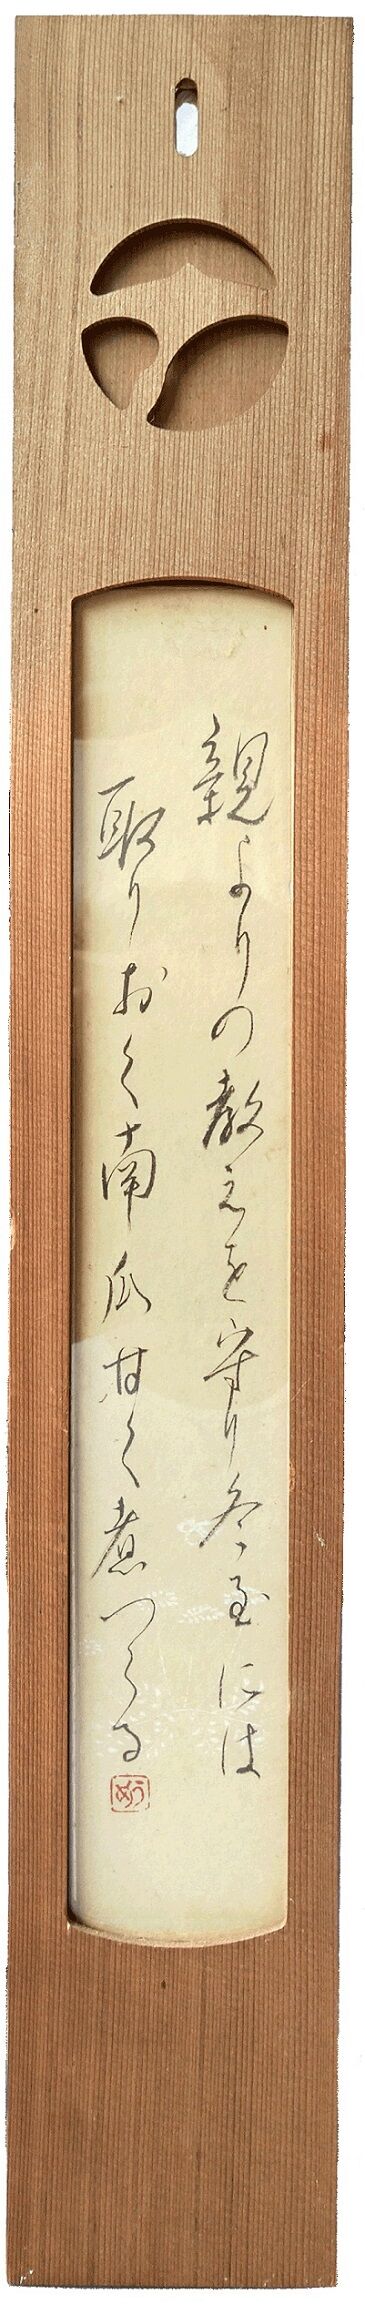 親よりの教えを守り冬至には
取りおく南瓜甘く煮つくる